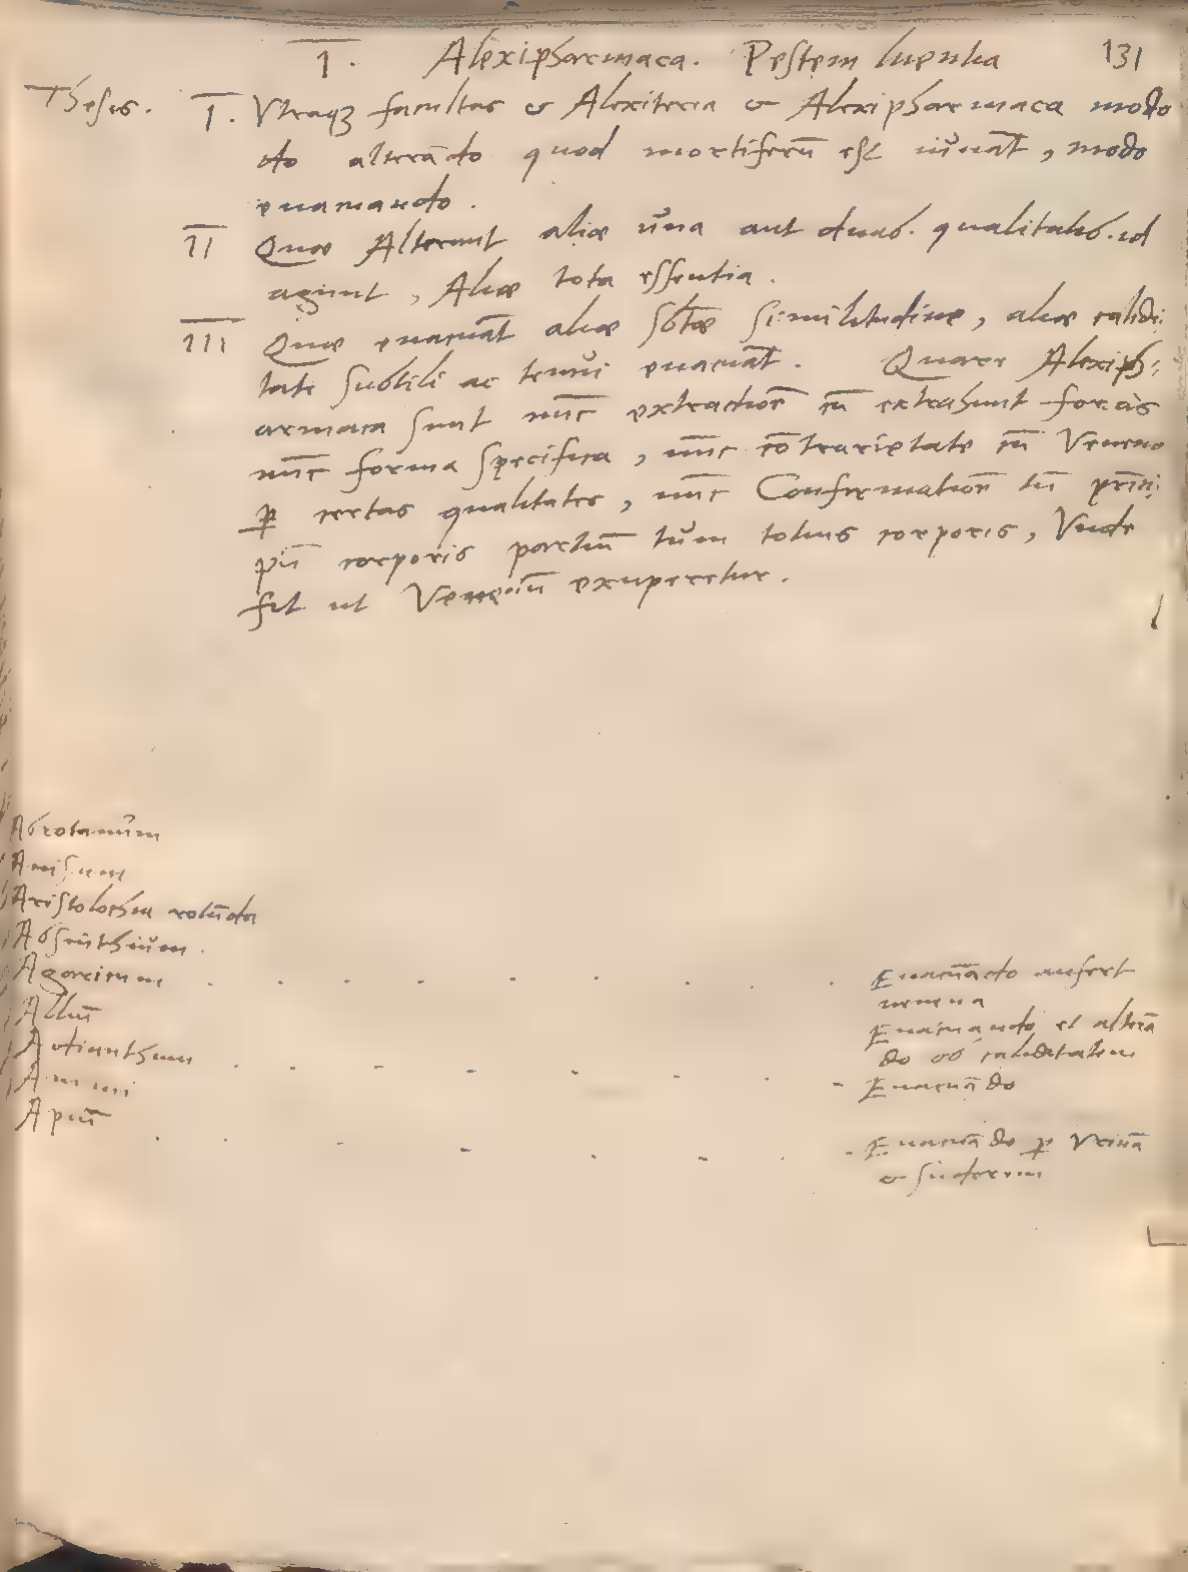 I. Alexipharmaca. Pestem luentia 131
Thesis. I. Vtraqꝫ facultas & Alexiteria & Alexipharmaca modo
do alterādo quod mortiferū est iuuāt, modo
euacuando.
II Quæ Alterant aliæ una aut duab. qualitatib. id
agunt, Aliæ tota essentia.
III Quæ euacuāt aliæ sbtæ similitudine, aliæ calidi:
tate subtili ac tenui euacuāt. Quare Alexiph:
armaca sunt nūc extractionē cū extrahunt foras
nūc forma specifica, nūc cōtrarietate cū Veneno
ꝑ certas qualitates, nūc Confirmationē tū prīci:
piū corporis partiū tum totius corporis, Vnde
fit ut Venenū exuperetur.
Abrotanum
Anisum
Aristolochia rotūda
Absinthium.
Agaricum . . . . . . . . Euacuādo aufert
uenena
Alliū Euacuando et alterā
do ob caliditatem
Adianthum . . . . . . . - Euacuādo
Ammi
Apiū . . . . . . . . Euacuādo ꝑ Vrinā
& sudorem